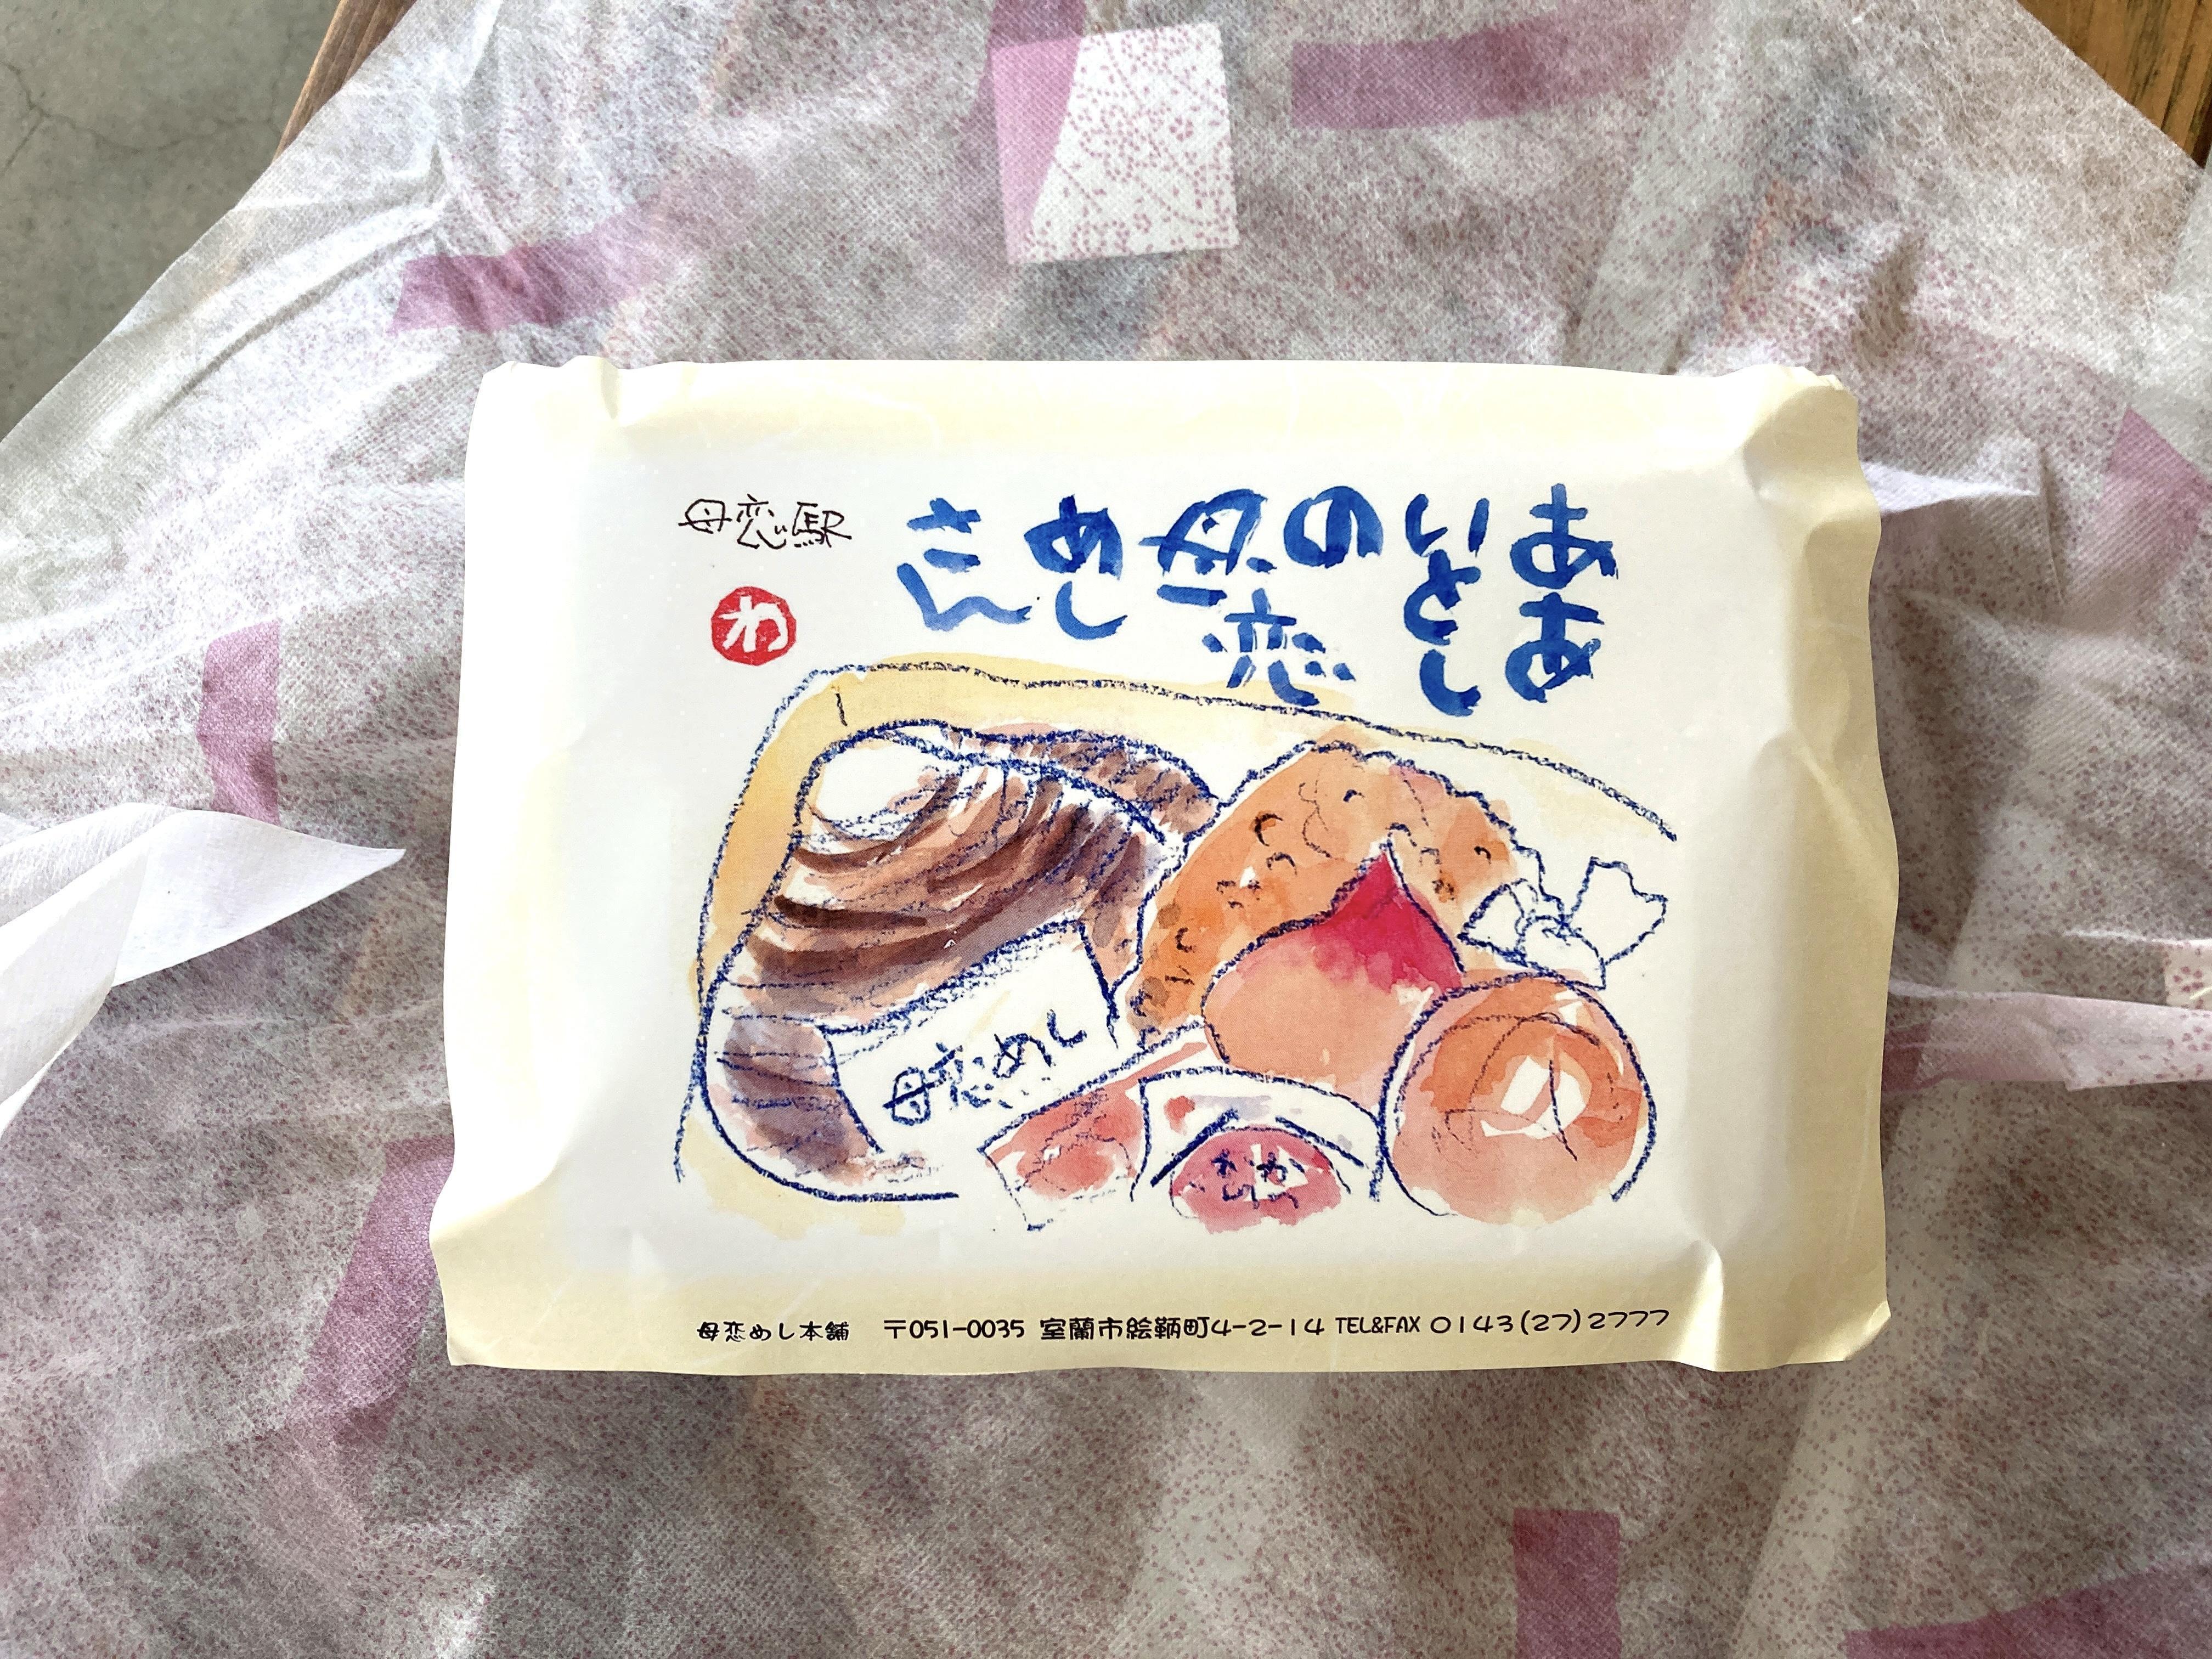 ああ
いとし
の
母恋
めし
さん
母恋駅
わ
母恋めし
母恋めし本舗 〒051-0035 室蘭市絵鞆町4-2-14 TEL&FAX 0143(27)2777